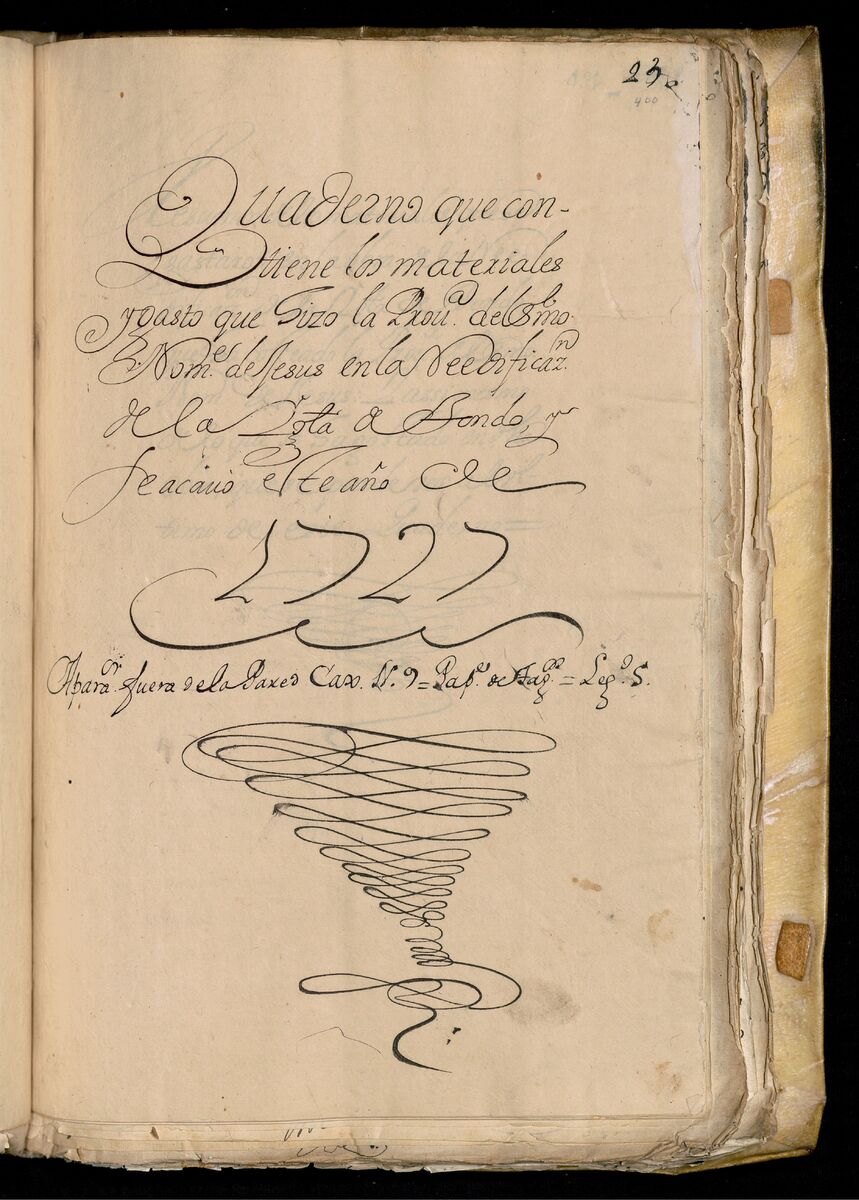 23
400
Quaderno que con-
tiene los materiales
y gasto que hizo la Prouª. del SSmo.
Nomᵉ. de Jesus en la Reedificazⁿ.
de la de Hondo, y
se acauó este año de
1727
Aparᵒʳ. fuera de la Pared Cax. N. 9 = Papˢ. de Hazᵈᵃ. = Legᵒ. 5.